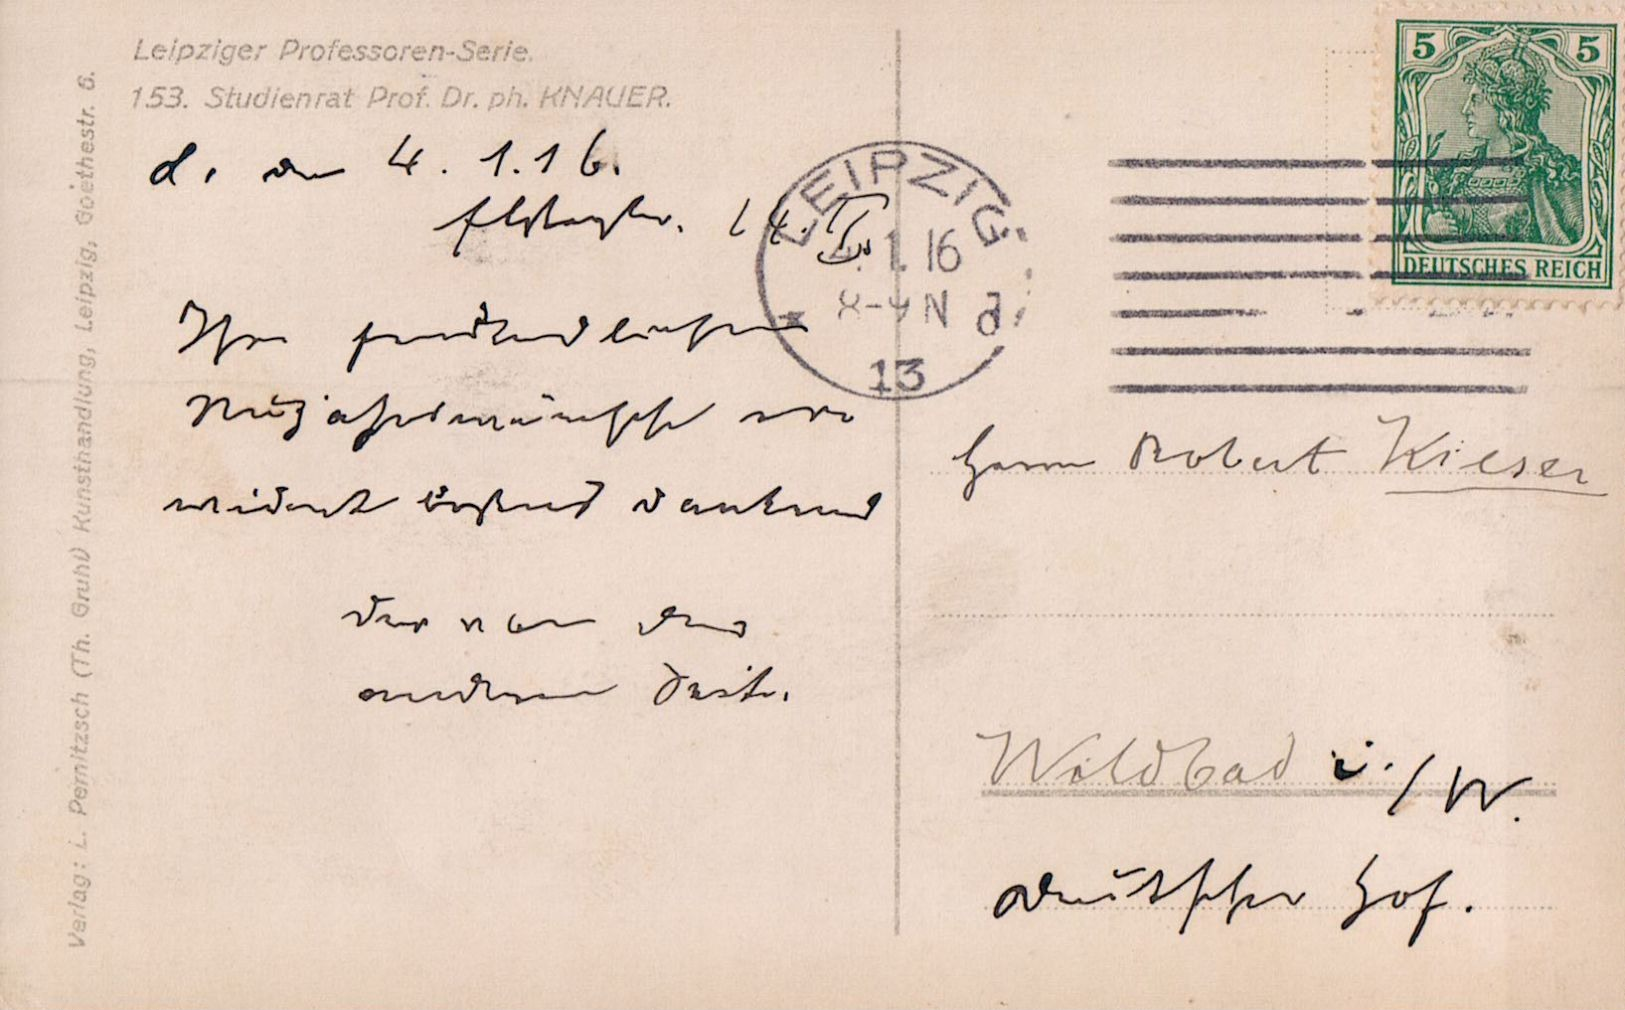 Leipziger Professoren-Serie.
153. Studienrat Prof. Dr. ph. KNAUER.
Verlag: L. Pernitzsch (Th. Gruhl) Kunsthandlung, Leipzig, Goethestr. 6.
L. den 4.1.16.
14. I.
Ihre freundlichen
Neujahrswünsche
erwidert bestens dankend
der von der
anderen Seite.
LEIPZIG
4.1.16
8-9N
13
5 5
DEUTSCHES REICH
Herrn Robert Kieser
Wildbad i./W.
Deutscher Hof.